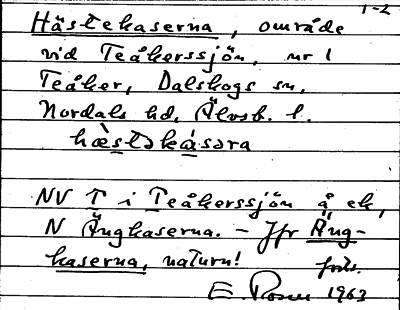 1-2
Hästekaserna, område
vid Teåkerssjön, nr 1
Teåker, Dalskogs sn,
Nordals hd, Älvsb. l.
hæ̀stəká̱səra
NV T i Teåkerssjön å ek,
N Ängkaserna. – Jfr Äng-
kaserna, naturn!
forts.
E. Rosen 1963